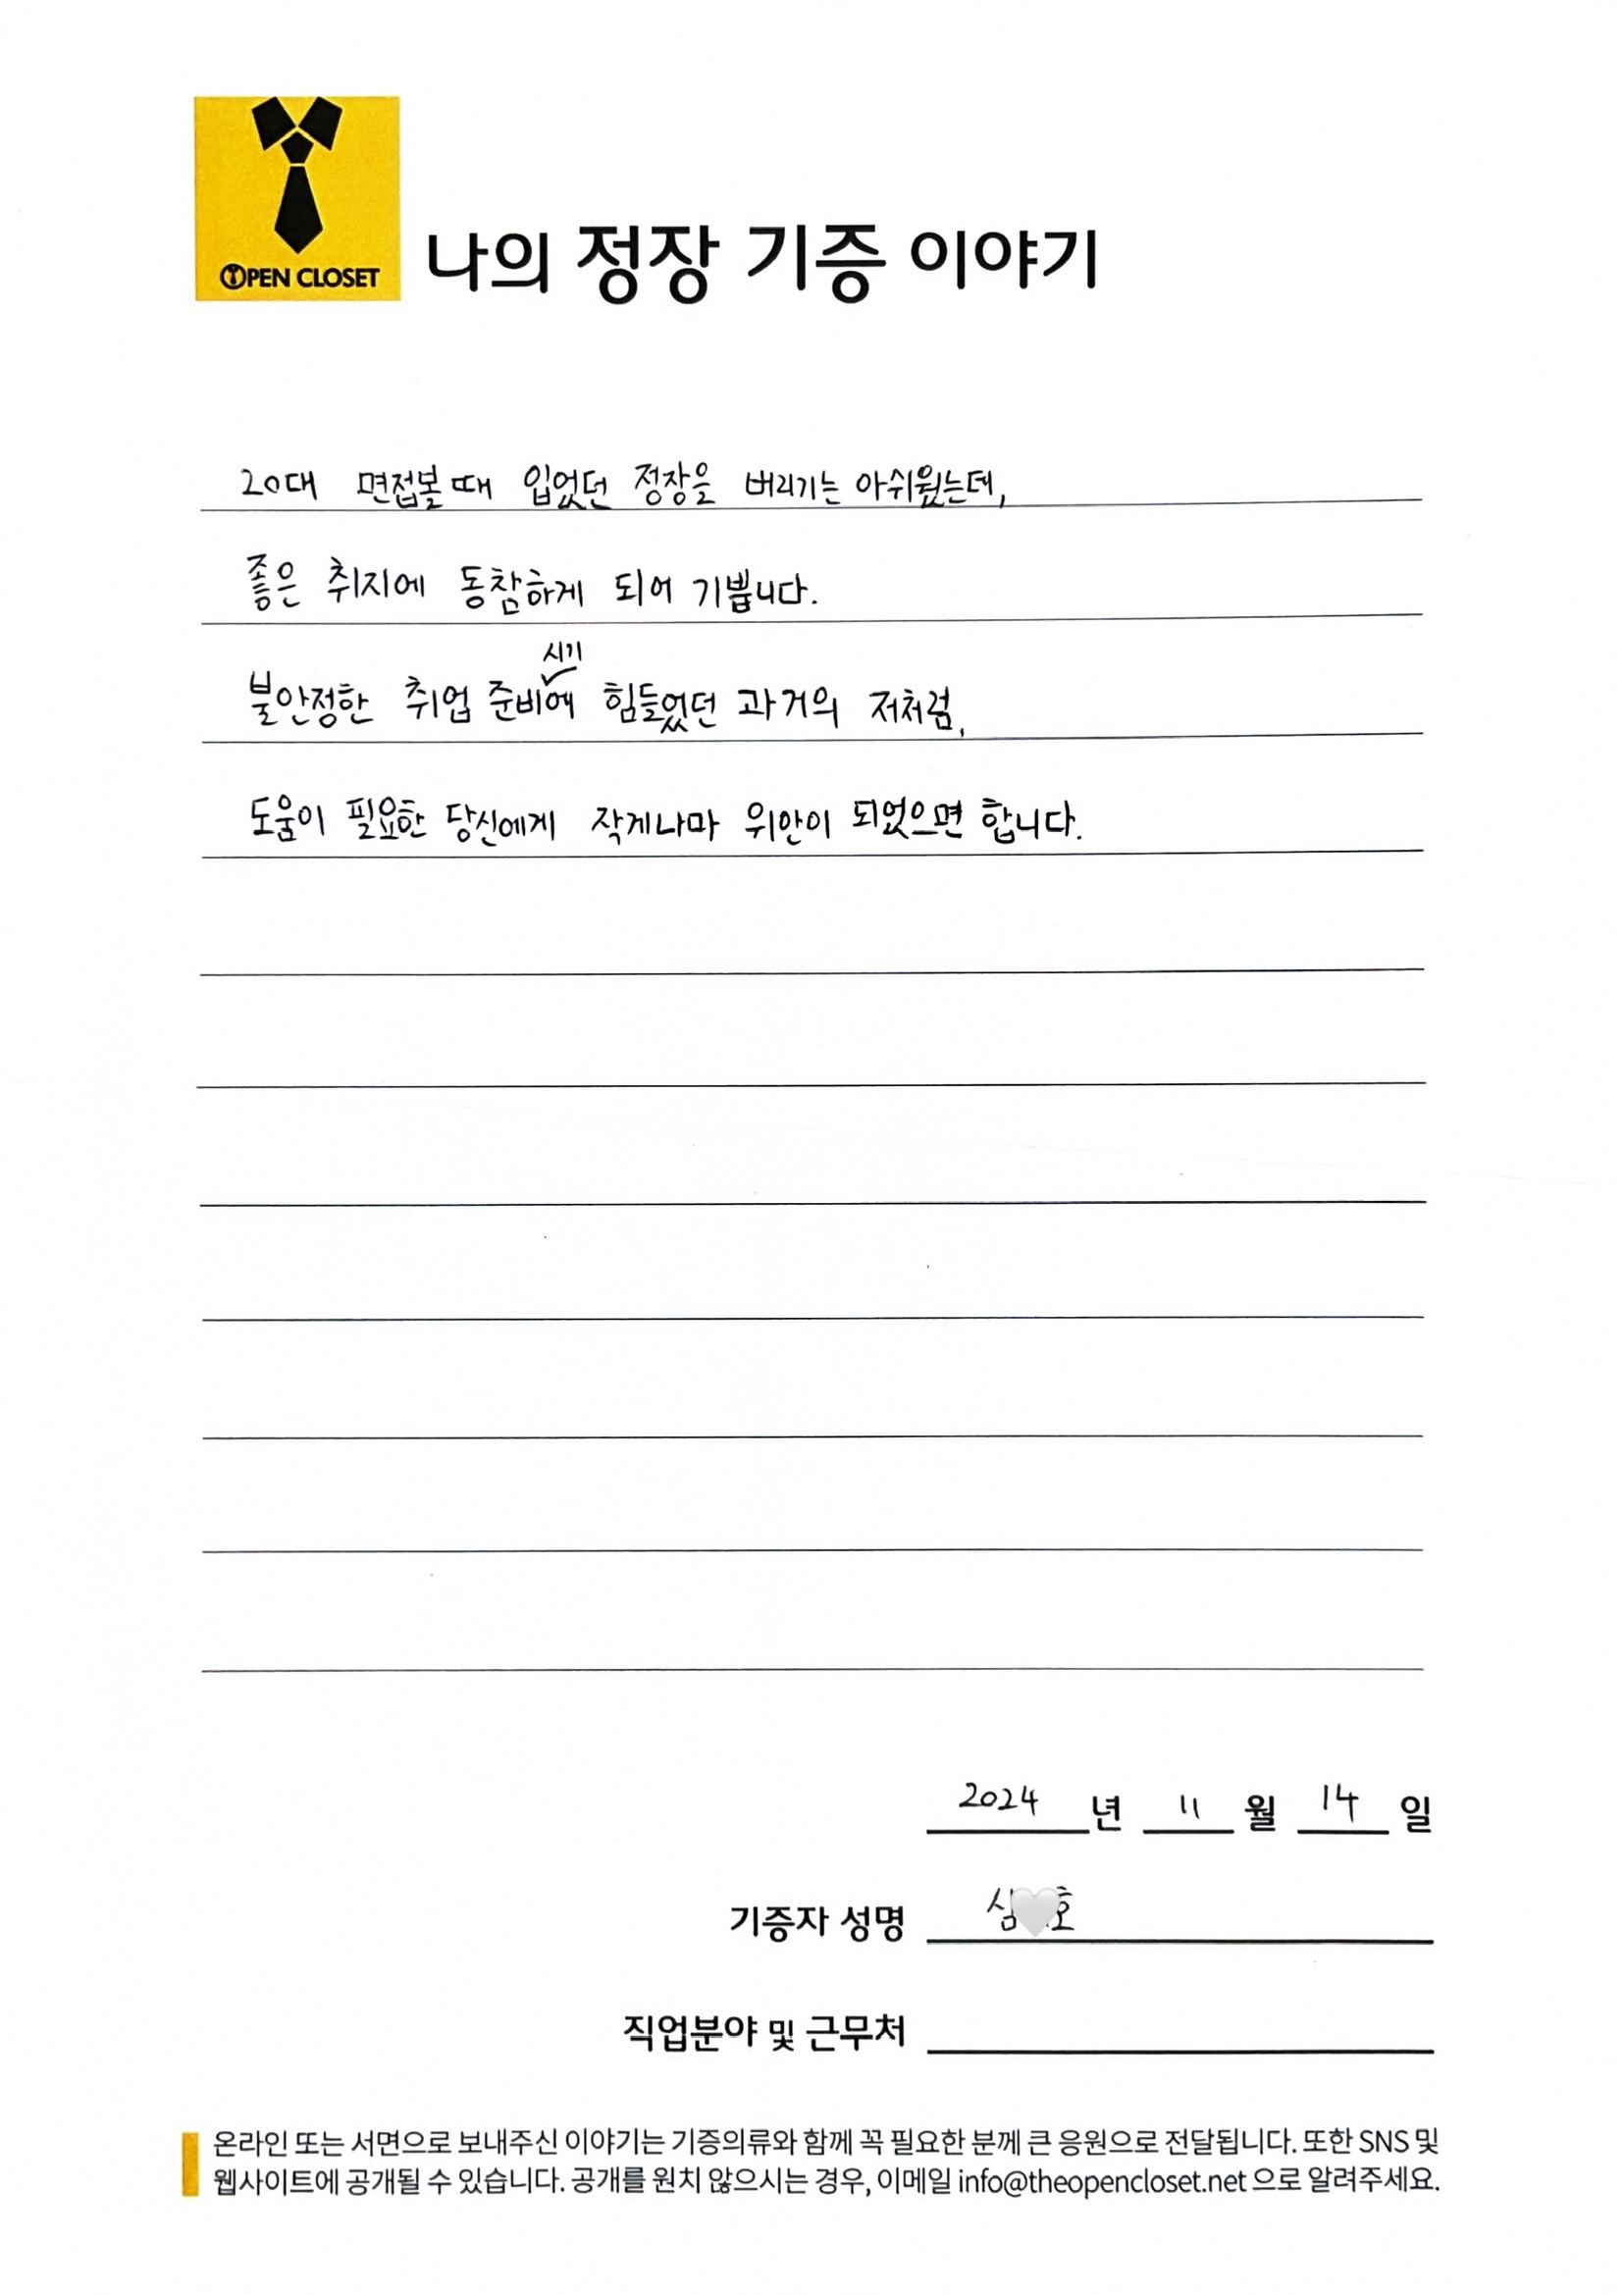 OPEN CLOSET
나의 정장 기증 이야기
20대 면접볼 때 입었던 정장을 버리기는 아쉬웠는데,
좋은 취지에 동참하게 되어 기쁩니다.
시기
불안정한 취업 준비에 힘들었던 과거의 저처럼,
도움이 필요한 당신에게 작게나마 위안이 되었으면 합니다.
2024 년 11 월 14 일
기증자 성명 심 호
직업분야 및 근무처
온라인 또는 서면으로 보내주신 이야기는 기증의류와 함께 꼭 필요한 분께 큰 응원으로 전달됩니다. 또한 SNS 및
웹사이트에 공개될 수 있습니다. 공개를 원치 않으시는 경우, 이메일 info@theopencloset.net 으로 알려주세요.